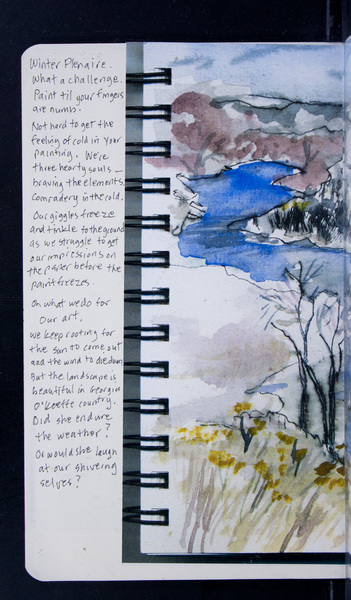 Winter Plenaire.
What a challenge.
Paint til your fingers
are numb.
Not hard to get the
feeling of cold in your
painting. We're
three hearty souls —
braving the elements.
Comradery in the cold.
Our giggles freeze
and tinkle to the ground
as we struggle to get
our impressions on
the paper before the
paint freezes.
Oh what we do for
our art.
We keep rooting for
the sun to come out
and the wind to die down
But the landscape is
beautiful in Georgia
O'Keeffe country.
Did she endure
the weather?
Or would she laugh
at our shivering
selves?